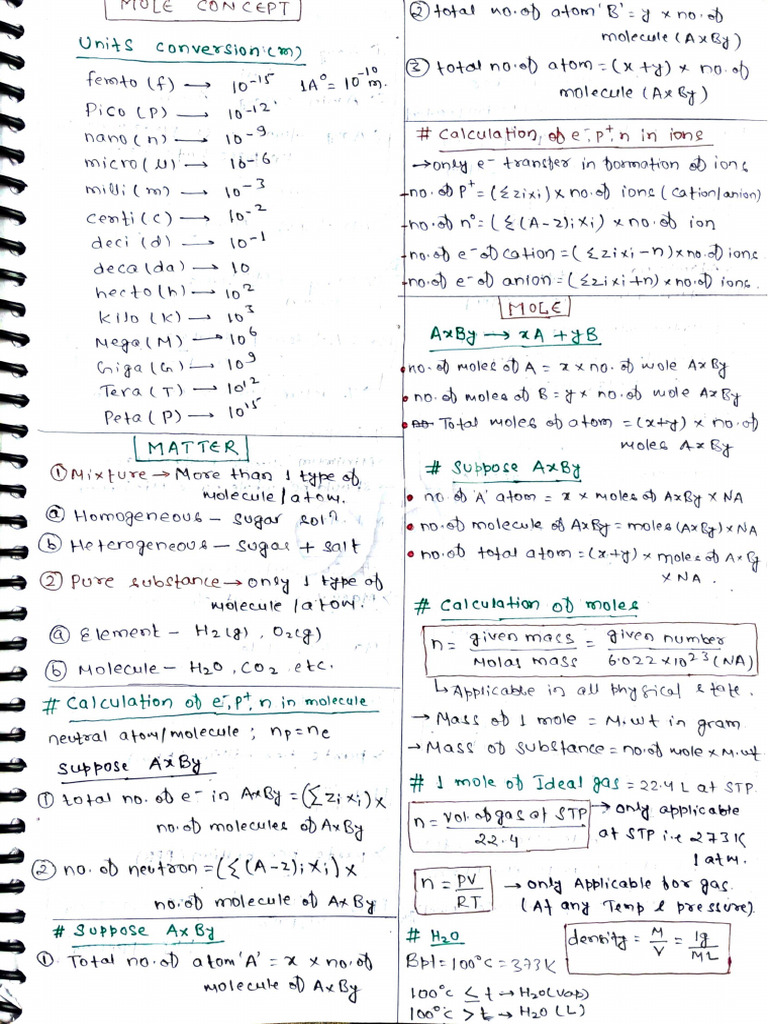 MOLE CONCEPT
Units conversion(m)
femto (f) → 10⁻¹⁵ 1A° = 10⁻¹⁰ m.
Pico (P) → 10⁻¹²
nano (n) → 10⁻⁹
micro (u) → 10⁻⁶
milli (m) → 10⁻³
centi (c) → 10⁻²
deci (d) → 10⁻¹
deca (da) → 10
hecto (h) → 10²
Kilo (K) → 10³
Mega (M) → 10⁶
Giga (G) → 10⁹
Tera (T) → 10¹²
Peta (P) → 10¹⁵
MATTER
① Mixture → More than 1 type of
molecule/atom.
ⓐ Homogeneous – sugar solⁿ
ⓑ Heterogeneous – sugar + salt
② Pure substance → only 1 type of
molecule/atom.
ⓐ Element – H₂(g), O₂(g)
ⓑ Molecule – H₂O, CO₂ etc.
# Calculation of e⁻, p⁺, n in molecule
neutral atom/molecule ; np = ne
Suppose AxBy
① total no. of e⁻ in AxBy = (Σzixi) ×
no. of molecules of AxBy
② no. of neutron = (Σ(A-z)i xi) ×
no. of molecule of AxBy
# Suppose AxBy
① Total no. of atom 'A' = x × no. of
molecule of AxBy
② total no. of atom 'B' = y × no. of
molecule (AxBy)
③ total no. of atom = (x+y) × no. of
molecule (AxBy)
# Calculation of e⁻, p⁺, n in ions
→ only e⁻ transfer in formation of ions
- no. of p⁺ = (Σzixi) × no. of ions (cation/anion)
- no. of n° = (Σ(A-z)i xi) × no. of ion
- no. of e⁻ of cation = (Σzixi - n) × no. of ions
- no. of e⁻ of anion = (Σzixi + n) × no. of ions.
MOLE
AxBy → xA + yB
• no. of moles of A = x × no. of mole AxBy
• no. of moles of B = y × no. of mole AxBy
• Total moles of atom = (x+y) × no. of
moles AxBy
# Suppose AxBy
• no. of 'A' atom = x × moles of AxBy × NA
• no. of molecule of AxBy = moles (AxBy) × NA
• no. of total atom = (x+y) × moles of AxBy
× NA.
# Calculation of moles
n = given mass / Molas mass = given number / 6.022 × 10²³ (NA)
↳ Applicable in all physical state.
→ Mass of 1 mole = M.wt in gram
→ Mass of substance = no. of mole × M.wt
# 1 mole of Ideal gas = 22.4 L at STP
n = vol. of gas at STP / 22.4 → only applicable
at STP i.e 273K
1 atm.
n = PV / RT → only Applicable for gas.
(At any Temp & pressure)
# H₂O density = M / V = 1g / ML
Bpt = 100°c = 373K
100°c ≤ t → H₂O (vap)
100°c > t → H₂O (L)